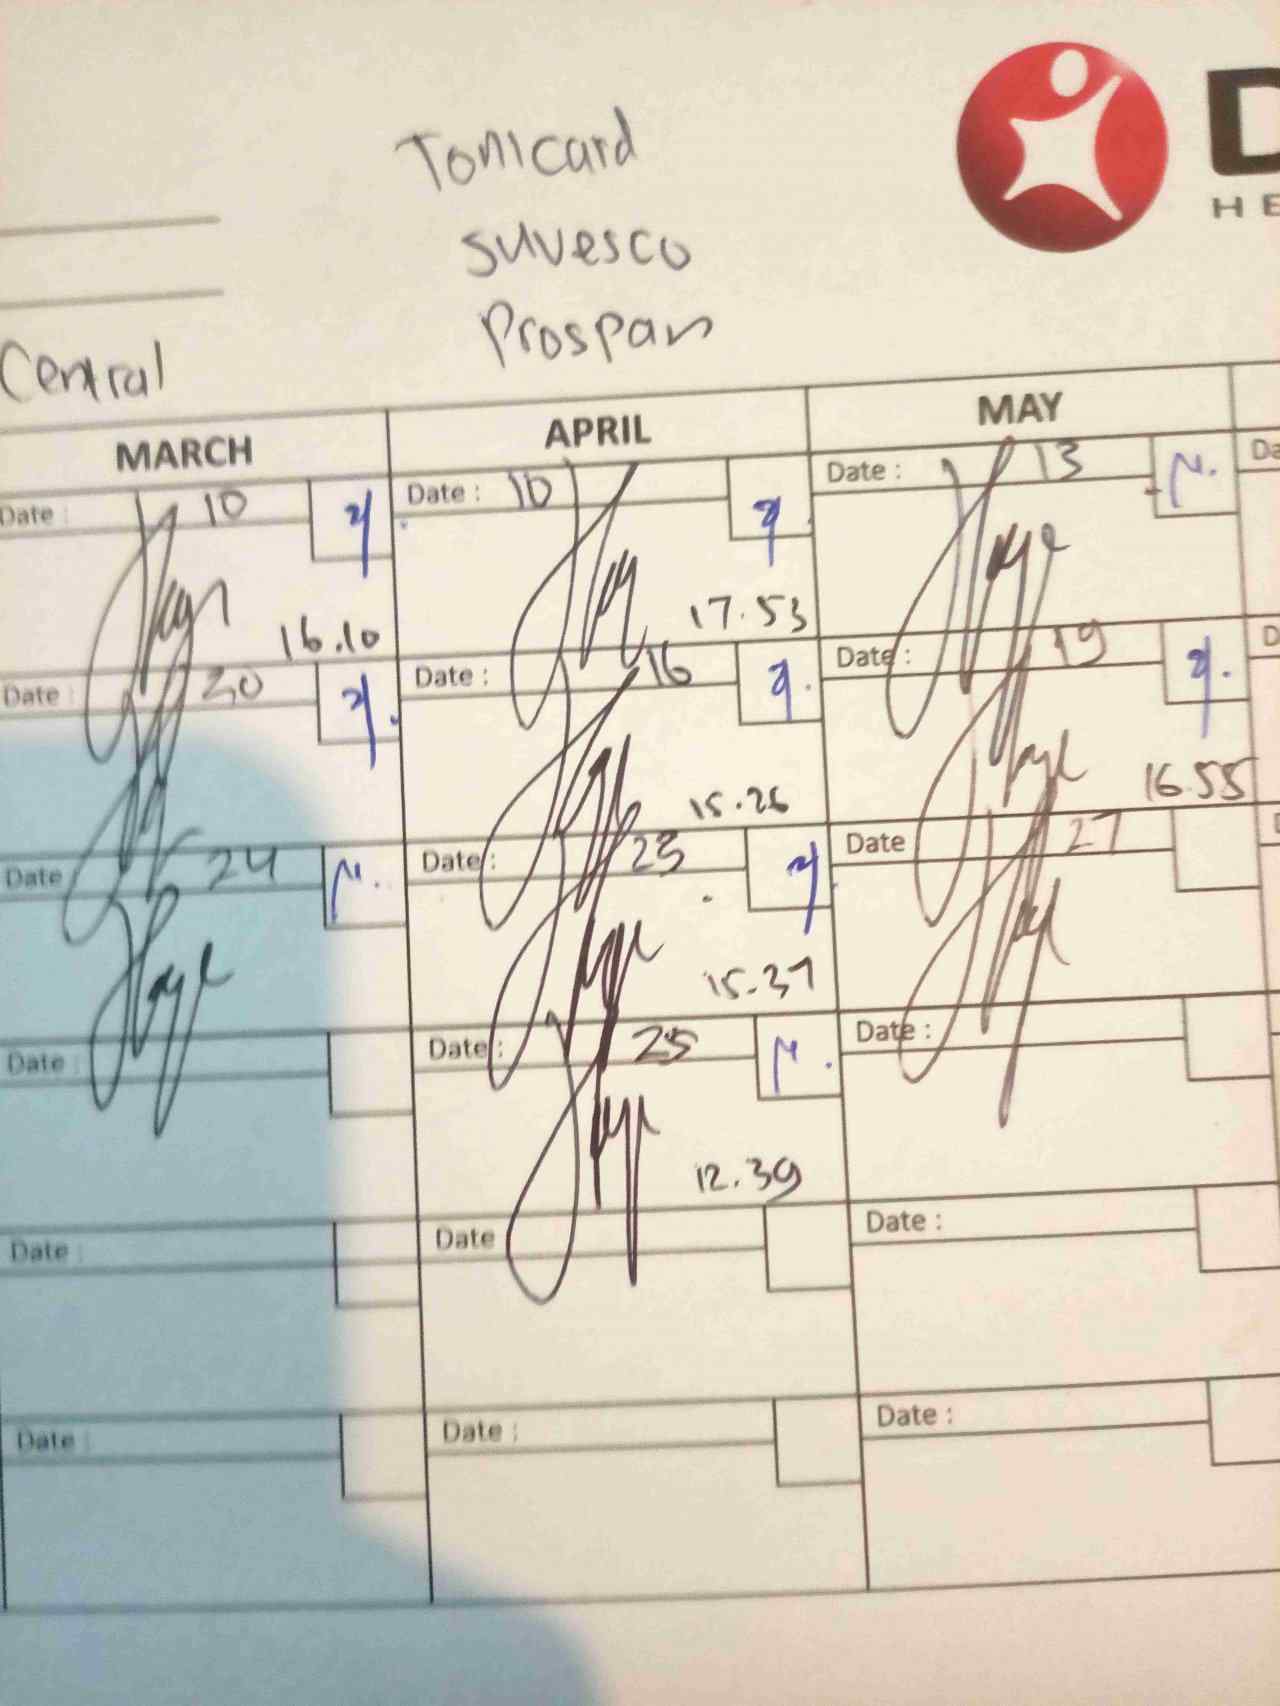 Tonicard
D
HE
Suvesco
Prospan
Central
MARCH APRIL MAY
Date : 10 Date : 10 Date : 13 Da
16.10 17.53
Date : 20 Date : 16 Date : 19 D
15.26 16.55
Date 24 Date : 23 Date 27
15.37
Date : Date : 25 Date :
12.39
Date : Date Date :
Date : Date : Date :